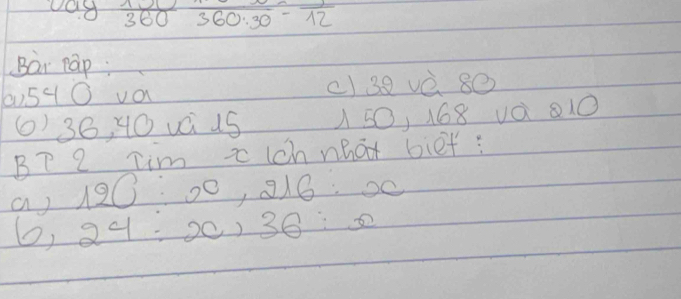 360 360:30 = 12
Bài tập:
a) 540 và
c) 39 và 80
b) 36, 40 và 15
150, 168 và 210
BT 2 Tìm x lớn nhất biết:
a) 120 : x, 216 : x
b, 24 : x, 36 : x